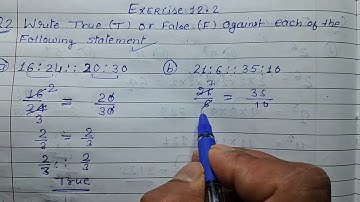 Exercise 12.2
Q2 Write True (T) or False (F) against each of the
following statement
a) 16:24::20:30
16/24 = 20/30
2
3
2/3 = 2/3
2/3 :: 2/3
True
(b) 21:6::35:10
21/6 = 35/10
7